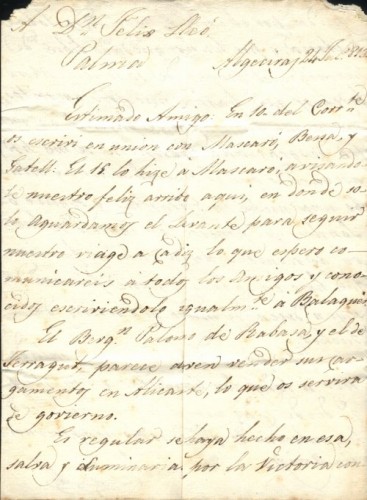 A Dn. Felix
Palma Algeciras 24 Jul.
Estimado Amigo: En 10. del Corrte.
os escriví en union con Mascaró, Bena, y
Satell. El 15 lo hize á Mascaró, avisando
le nuestro feliz arribo aqui, en donde so-
lo aguardamos el Levante para seguir
nuestro viage a Cadiz lo que espero co-
municareis a todos los Amigos y cono-
cidos escriviendolo igualmte. á Balaguer
El Bergn. Palomo de Rabasa, y el de
Ferragut, parece vender sus car-
gamentos en Alicante, lo que os servira
de govierno.
Es regular se haya hecho en esa,
salva y iluminaria por la Victoria con